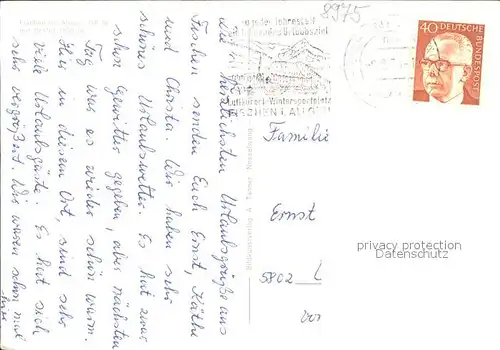 8975
zu jeder Jahreszeit
Luftkurort - Wintersportplatz
FISCHEN I. ALLGÄU
40
DEUTSCHE
BUNDESPOST
die herzlichsten Urlaubsgrüße aus
Fischen senden Euch Ernst, Käthe
und Christa. Wir haben sehr
schönes Urlaubswetter. Es hat zwar
schon Gewitter gegeben, aber nächsten
Tag war es wieder schön warm.
Hier in diesem Ort, sind sehr
viele Urlaubsgäste. Es hat sich
sehr vergrößert. Wir waren schon mal
hier
Familie
Ernst
5802
privacy protection
Datenschutz